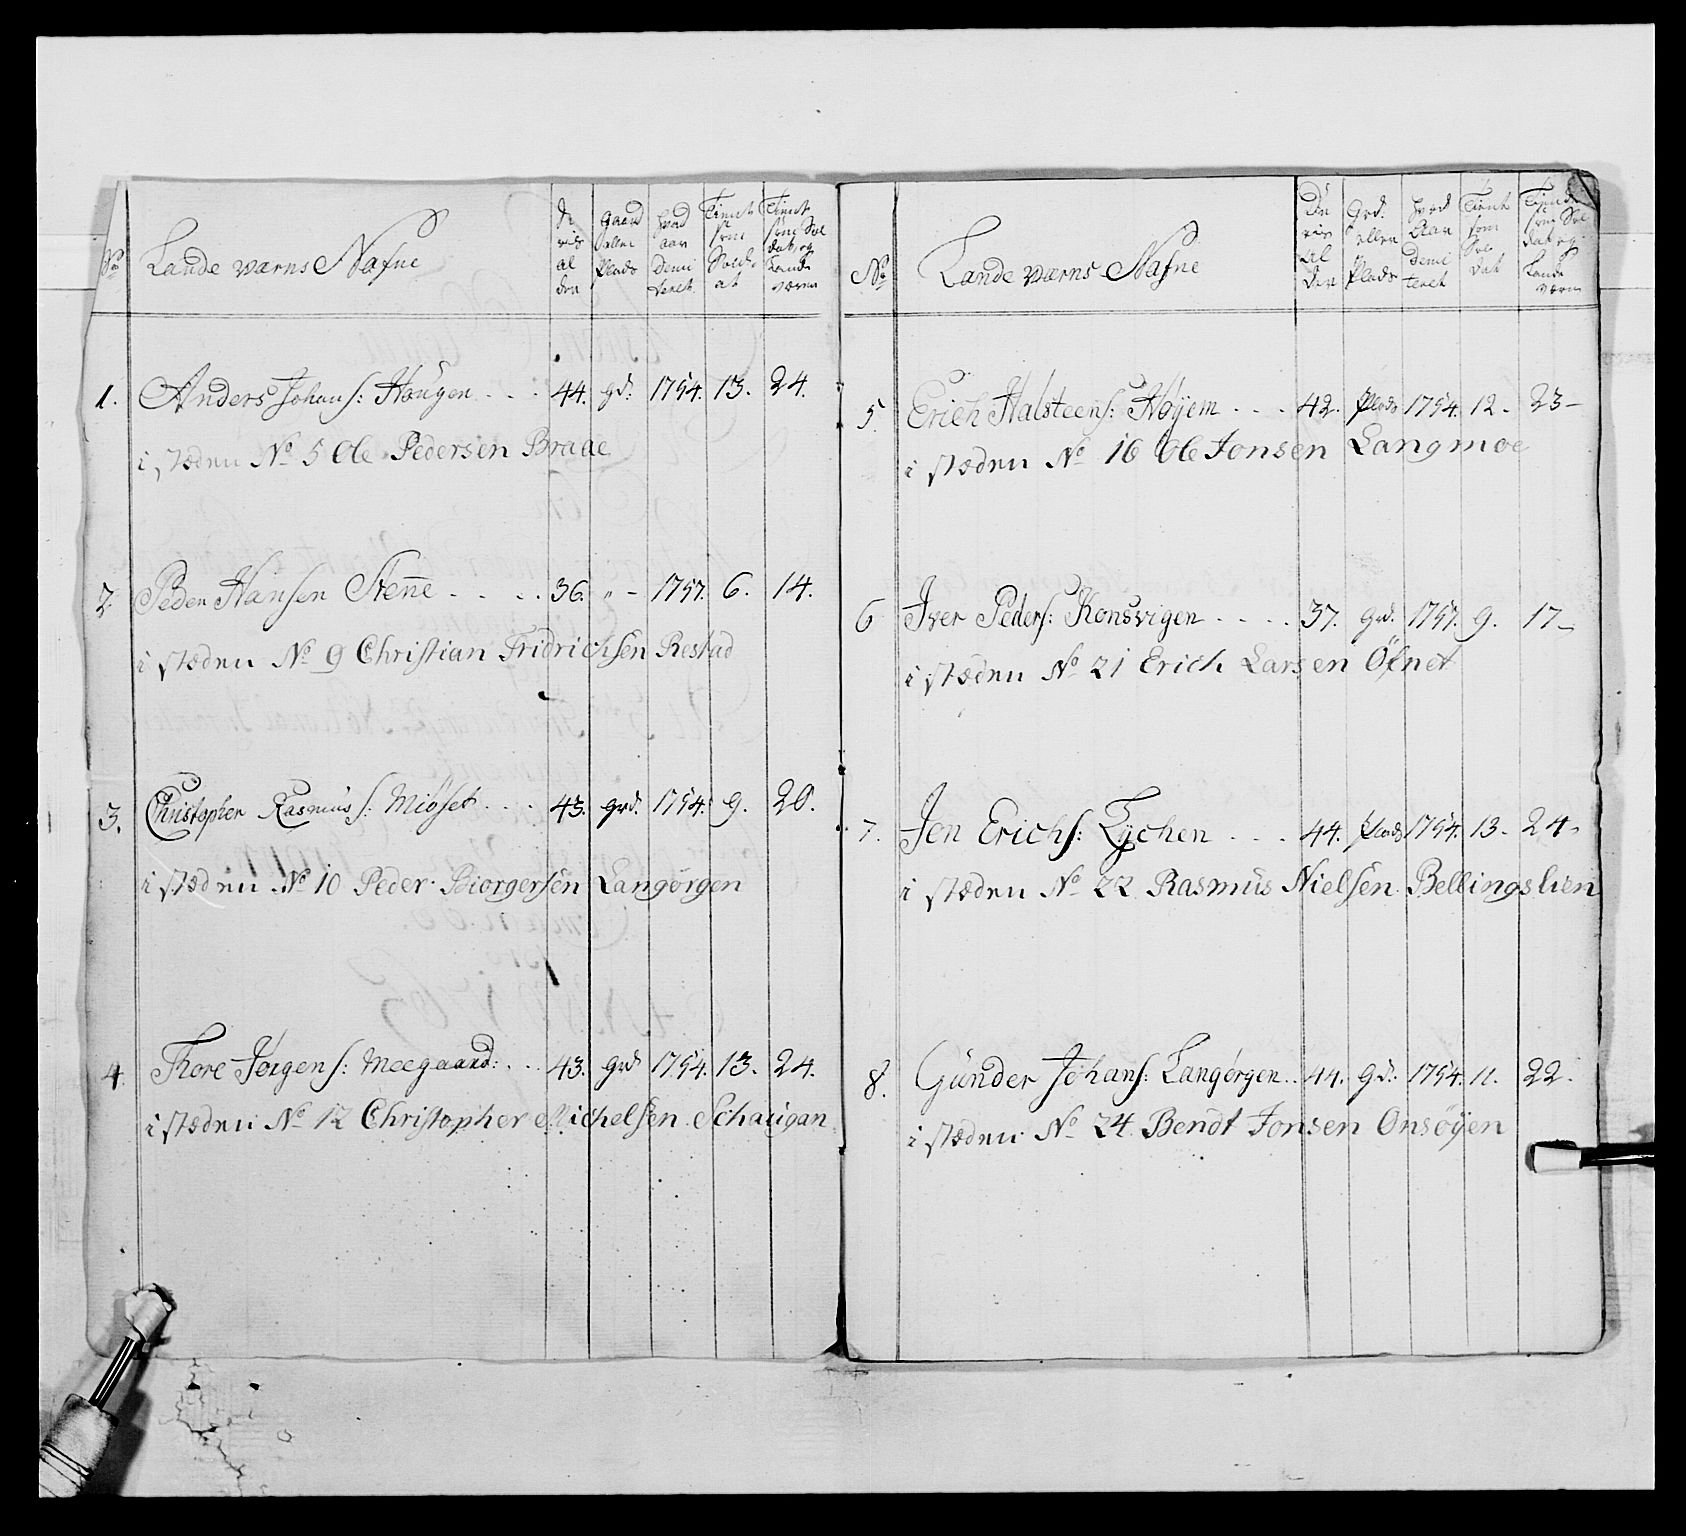 No
Lande værns Nafne
De
ris
al
der
gaard
eller
Plads
hvad
aar
Demi
teret
Tient
som
Sold-
at
Tient
som Sol
dat og
Lande
værn
1. Anders Johans: Haugen . . . 44. gd. 1754. 13. 24.
i stæden No 5 Ole Pedersen Braae
2. Peder Hansen Stenne . . . . 36. „ – 1757. 6. 14.
i stæden No 9 Christian Fridrichsen Restad
3. Christopher Rasmus s: Miøset . . . 43. grd. 1754. 9. 20.
i stæden No 10 Peder Biorgersen Langørgen
4. Thore Jørgens: Meegaard: . . 43. grd 1754. 13. 24.
i stæden No 12 Christopher Michelsen Schaugan
No
Lande værns Nafne
De
ris
al
der
Grd:
eller
Plads
hvad
Aar
Demi
teret
Tient
som
Sol
dat
Tient
som Sol
dat og
Lande
værn
5. Erich Halsteens: Høyem . . . 42. Plads 1754. 12. 23–
i stæden No 16 Ole Jonsen Langmoe
6 Iver Peders: Konsvigen . . . . 37. Grd. 1757. 9. 17–
i stæden No 21 Erich Larsen Öfnet
7. Jon Erichs: Lychen . . . 44. Plads 1754. 13. 24.
i stæden No 22 Rasmus Nielsen Bellingslien
8. Gunder Johans: Langørgen . . 44. gd: 1754. 11. 22.
i stæden No 24 Bendt Jonsen Onsøyen